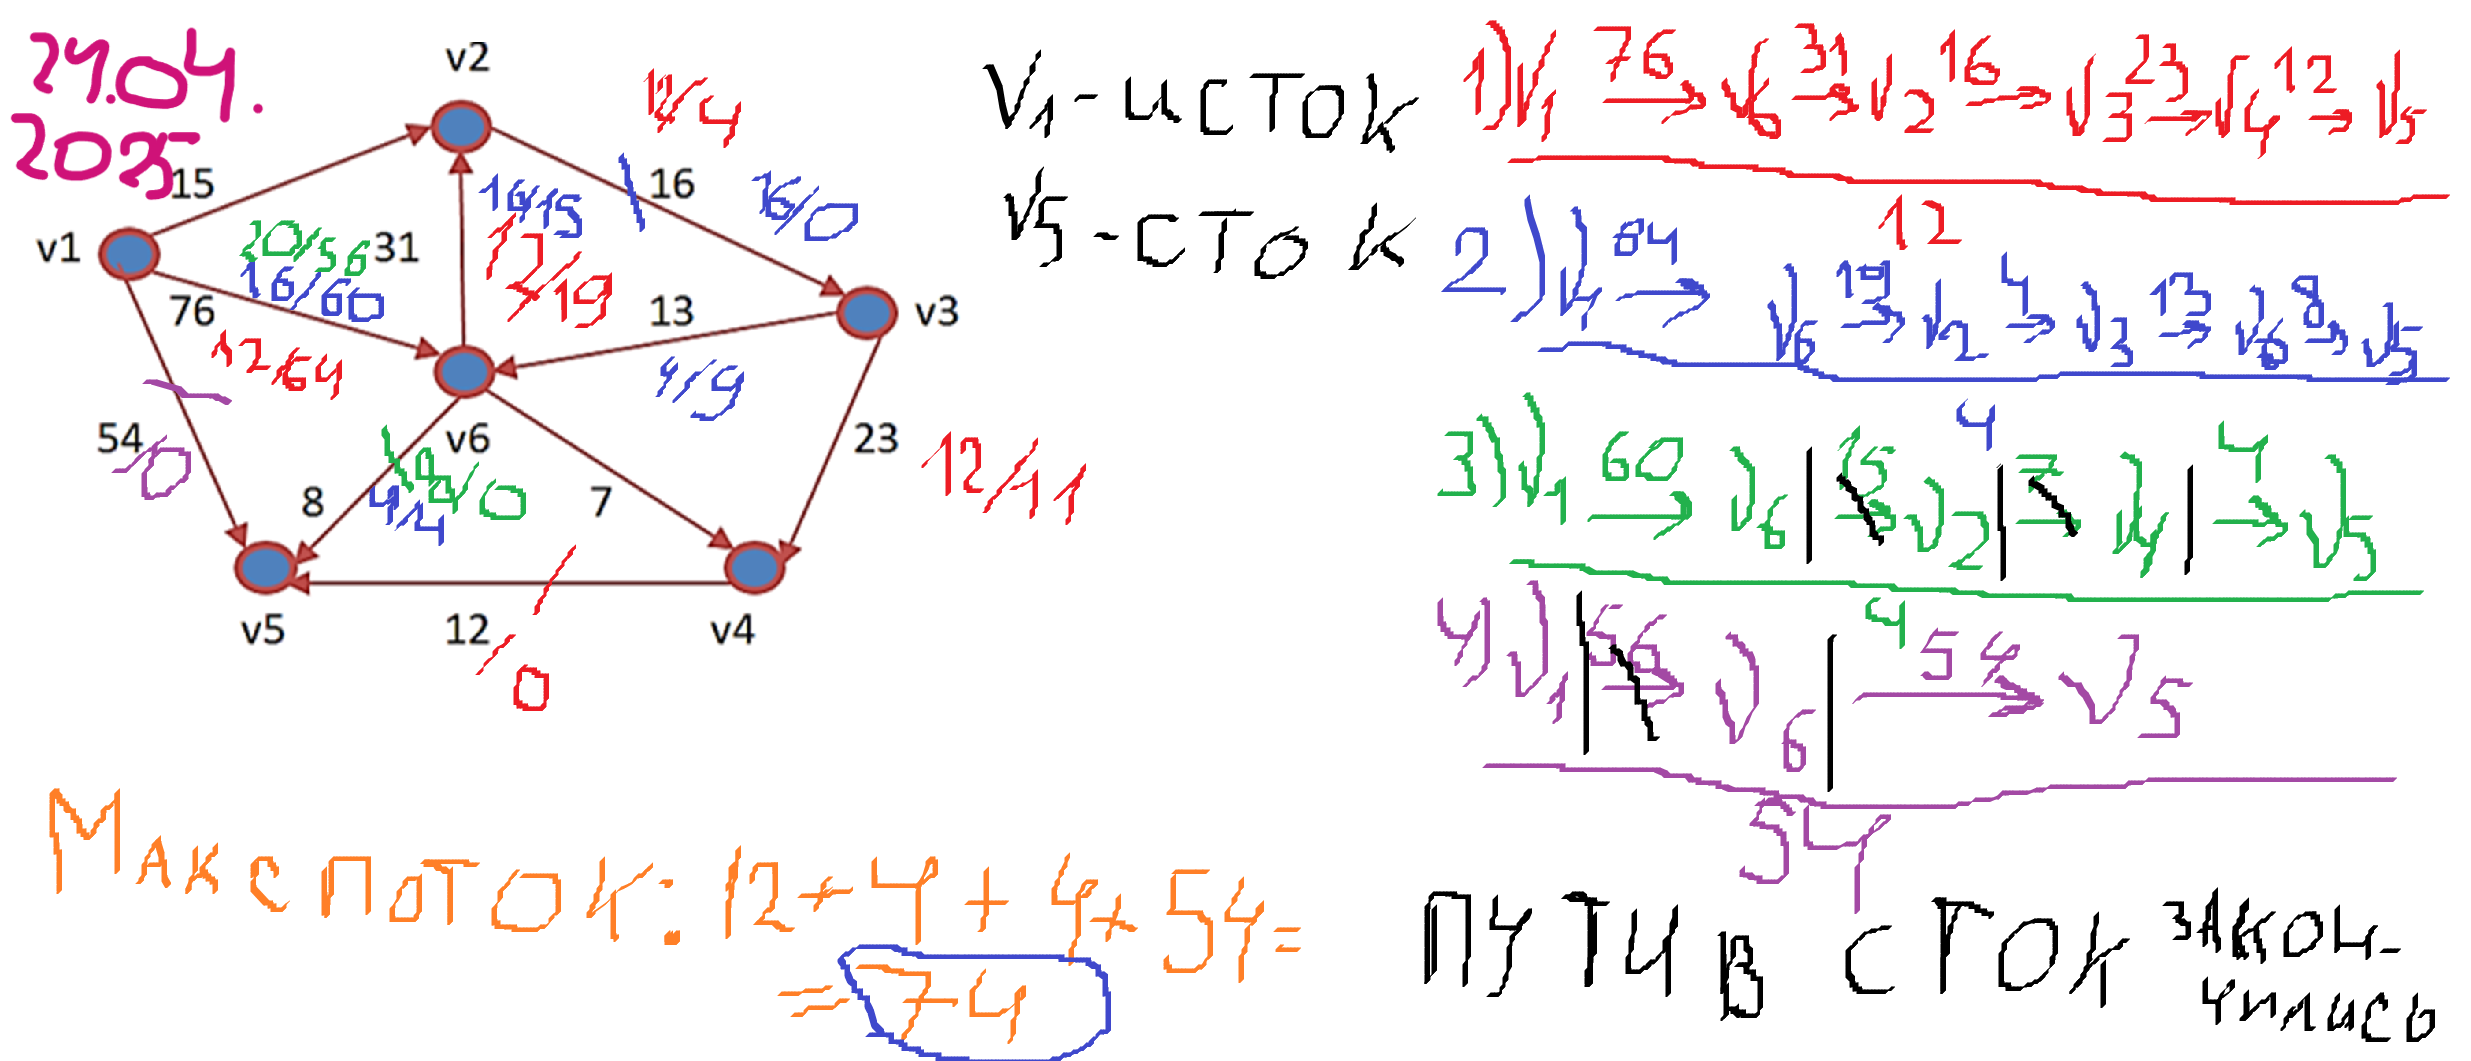 24.04.
2025
v2
12/4
15
16
16/0
v1
31
16/15
12/19
20/56
16/60
76
12/64
13
v3
4/9
54
/0
v6
23
12/11
8
8/0
4/4
7
v5
12
v4
/0
V1 - исток
V5 - сток
1) V1 76 → V6 31 → V2 16 → V3 23 → V4 12 → V5
12
2) V1 64 → V6 19 → V2 4 → V3 13 → V6 8 → V5
4
3) V1 60 → V6 | 15 → V2 | 7 → V4 | 4 → V5
4
4) V1 | 56 → V6 | 54 → V5
54
Макс поток: 12 + 4 + 4 + 54 =
= 74
ПУТИ В СТОК ЗАКОН-
ЧИЛИСЬ